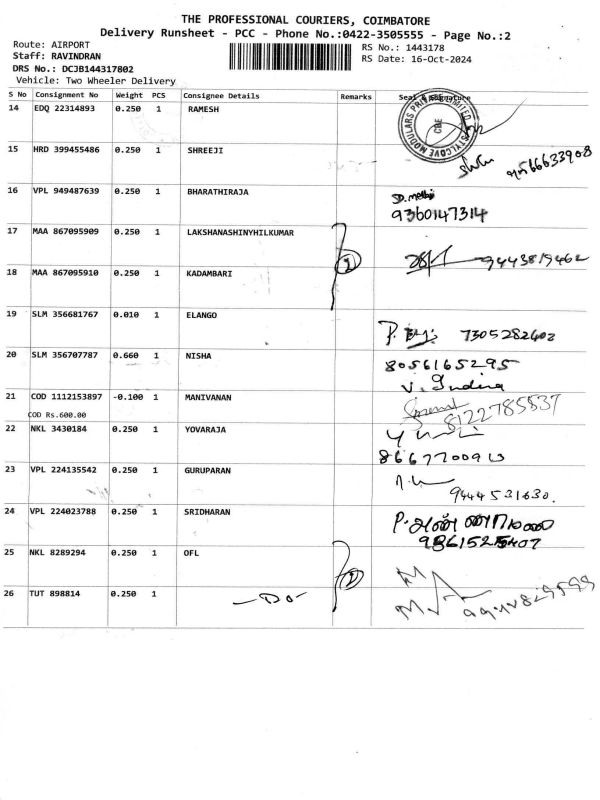 THE PROFESSIONAL COURIERS, COIMBATORE
Delivery Runsheet - PCC - Phone No.:0422-3505555 - Page No.:2
Route: AIRPORT
Staff: RAVINDRAN
DRS No.: DCJB144317802
Vehicle: Two Wheeler Delivery
RS No.: 1443178
RS Date: 16-Oct-2024
S No Consignment No Weight PCS Consignee Details Remarks Seal & Signature
14 EDQ 22314893 0.250 1 RAMESH
15 HRD 399455486 0.250 1 SHREEJI
16 VPL 949487639 0.250 1 BHARATHIRAJA
9360147314
17 MAA 867095909 0.250 1 LAKSHANASHINYHILKUMAR
2 9443819462
18 MAA 867095910 0.250 1 KADAMBARI
19 SLM 356681767 0.010 1 ELANGO
7305282602
20 SLM 356707787 0.660 1 NISHA
8056165295
V. Indira
21 COD 1112153897 -0.100 1 MANIVANAN
8122785537
COD Rs.600.00
22 NKL 3430184 0.250 1 YOVARAJA
23 VPL 224135542 0.250 1 GURUPARAN
9444531630.
24 VPL 224023788 0.250 1 SRIDHARAN
25 NKL 8289294 0.250 1 OFL
2
26 TUT 898814 0.250 1 -Do-